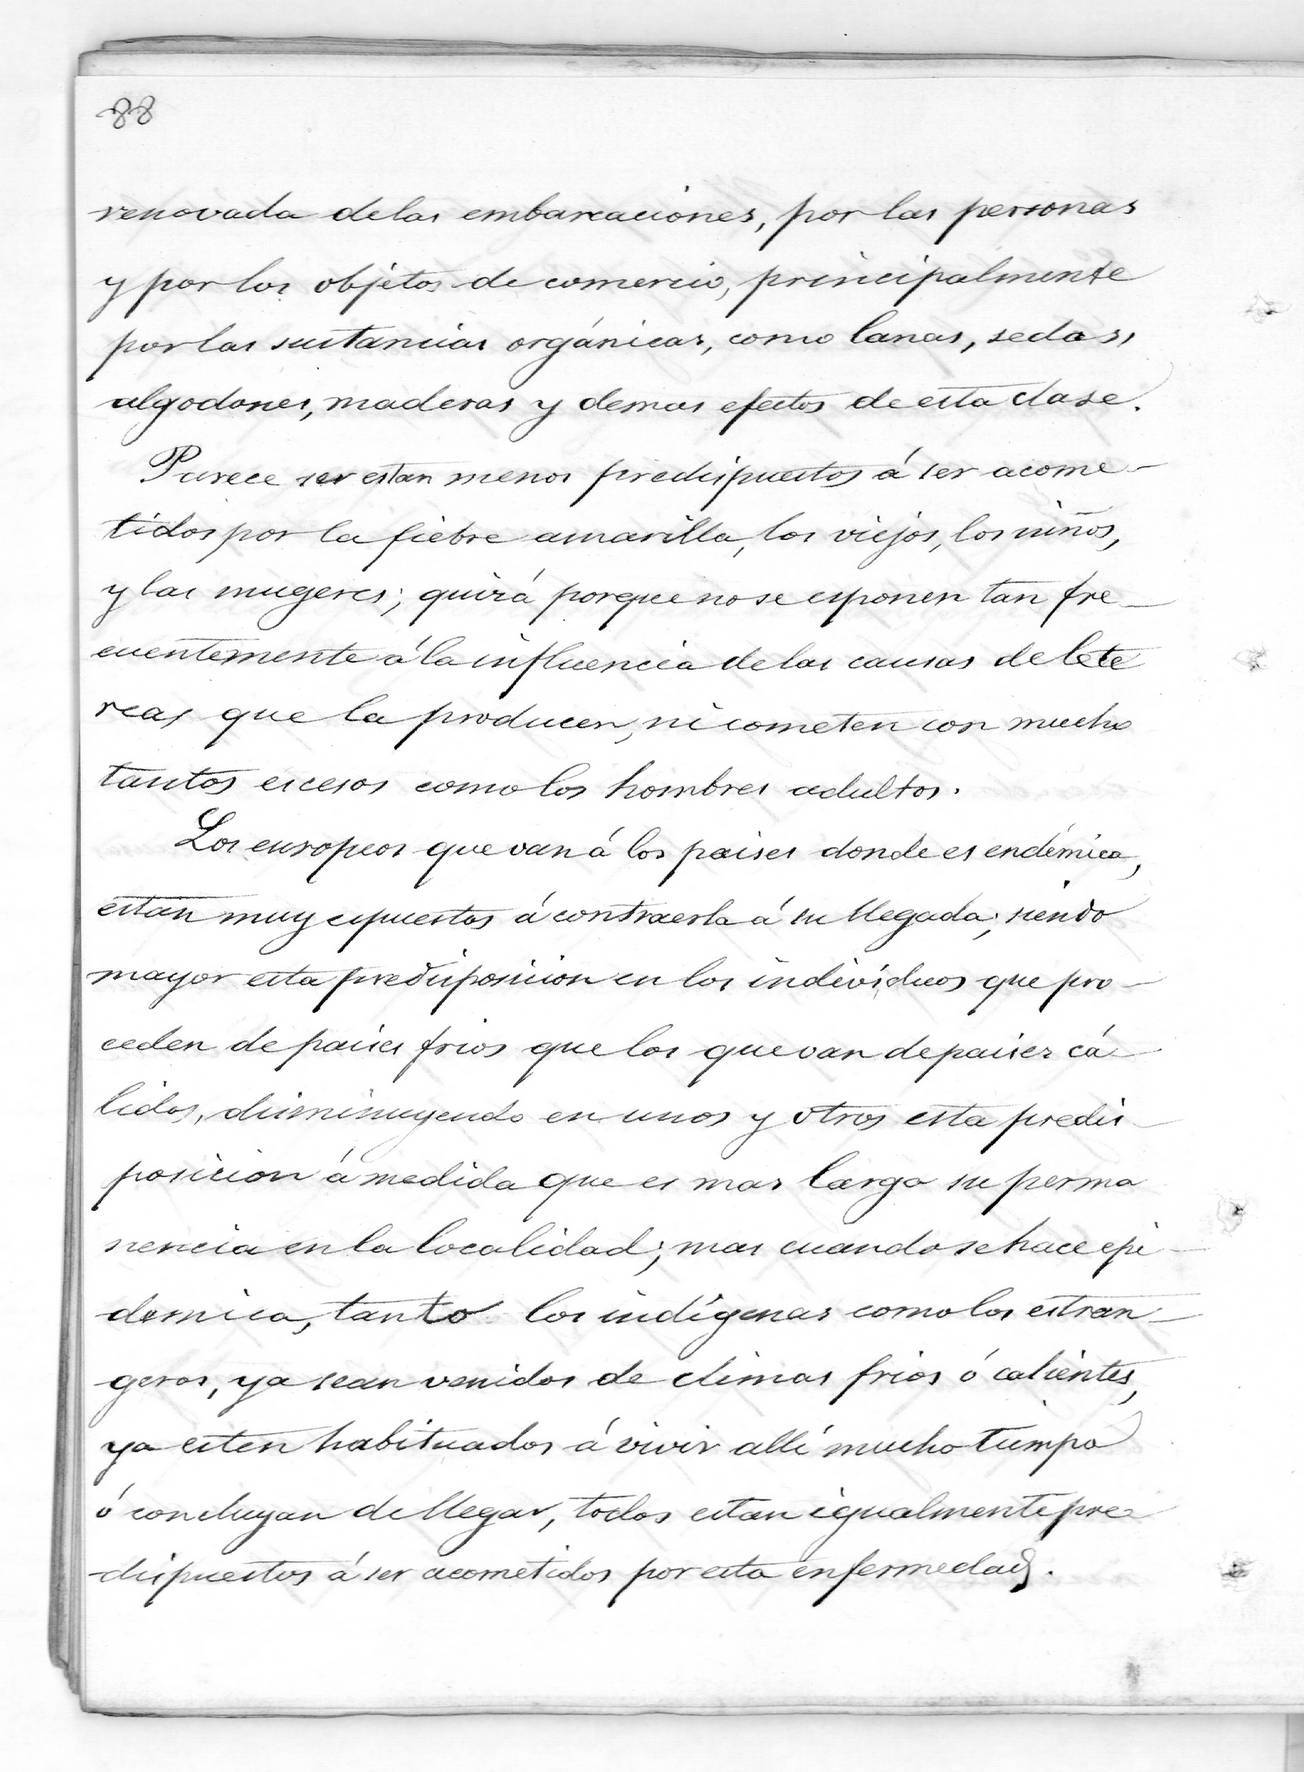 88
renovada de las embarcaciones, por las personas
y por los objetos de comercio, principalmente
por las sustancias orgánicas, como lanas, sedas,
algodones, maderas y demas efectos de esta clase.
Parece ser estan menos predispuestos á ser acome-
tidos por la fiebre amarilla, los viejos, los niños,
y las mugeres; quizá porque no se esponen tan fre-
cuentemente á la influencia de las causas delete
reas que la producen, ni cometen con mucho
tantos escesos como los hombres adultos.
Los europeos que van á los paises donde es endémica,
estan muy espuestos á contraerla á su llegada; siendo
mayor esta predisposicion en los individuos que pro-
ceden de paises frios que los que van de paises cá-
lidos, disminuyendo en unos y otros esta predis-
posicion á medida que es mas larga su perma
nencia en la localidad; mas cuando se hace epi-
demica, tanto los indígenas como los estran-
geros, ya sean venidos de climas frios ó calientes,
ya esten habituados á vivir allí mucho tiempo
ó concluyan de llegar, todos estan igualmente pre-
dispuestos á ser acometidos por esta enfermedad.